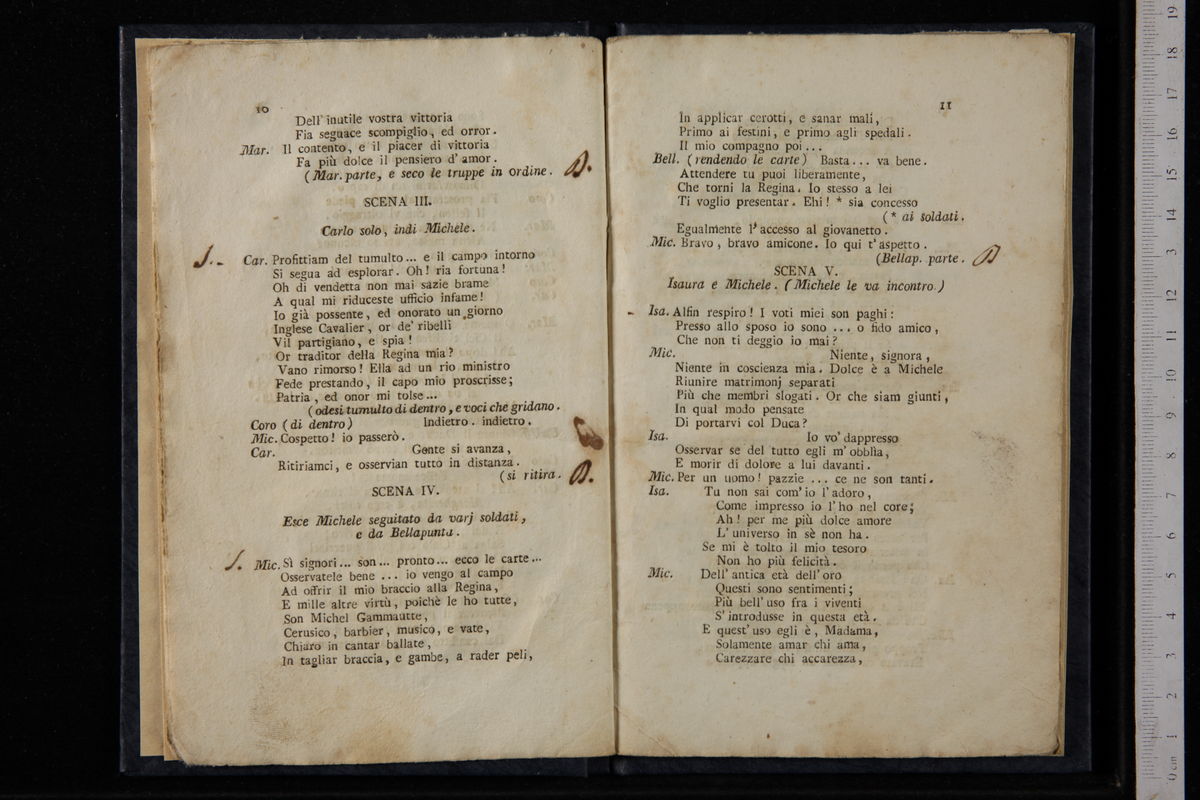 10
Dell' inutile vostra vittoria
Fia seguace scompiglio, ed orror.
Mar. Il contento, e il piacer di vittoria
Fa più dolce il pensiero d' amor.
(Mar. parte, e seco le truppe in ordine.
SCENA III.
Carlo solo, indi Michele.
Car. Profittiam del tumulto... e il campo intorno
Si segua ad esplorar. Oh! ria fortuna!
Oh di vendetta non mai sazie brame
A qual mi riduceste ufficio infame!
Io già possente, ed onorato un giorno
Inglese Cavalier, or de' ribelli
Vil partigiano, e spia!
Or traditor della Regina mia?
Vano rimorso! Ella ad un rio ministro
Fede prestando, il capo mio proscrisse;
Patria, ed onor mi tolse...
(odesi tumulto di dentro, e voci che gridano.
Coro (di dentro) Indietro. indietro.
Mic. Cospetto! io passerò.
Car. Gente si avanza,
Ritiriamci, e osservian tutto in distanza.
(si ritira.
SCENA IV.
Esce Michele seguitato da varj soldati,
e da Bellapunta.
Mic. Sì signori... son... pronto... ecco le carte...
Osservatele bene ... io vengo al campo
Ad offrir il mio braccio alla Regina,
E mille altre virtù, poichè le ho tutte,
Son Michel Gammautte,
Cerusico, barbier, musico, e vate,
Chiaro in cantar ballate,
In tagliar braccia, e gambe, a rader peli,
11
In applicar cerotti, e sanar mali,
Primo ai festini, e primo agli spedali.
Il mio compagno poi...
Bell. (rendendo le carte) Basta... va bene.
Attendere tu puoi liberamente,
Che torni la Regina. Io stesso a lei
Ti voglio presentar. Ehi! * sia concesso
(* ai soldati.
Egualmente l' accesso al giovanetto.
Mic. Bravo, bravo amicone. Io qui t' aspetto.
(Bellap. parte.
SCENA V.
Isaura e Michele. (Michele le va incontro.)
Isa. Alfin respiro! I voti miei son paghi:
Presso allo sposo io sono ... o fido amico,
Che non ti deggio io mai?
Mic. Niente, signora,
Niente in coscienza mia. Dolce è a Michele
Riunire matrimonj separati
Più che membri slogati. Or che siam giunti,
In qual modo pensate
Di portarvi col Duca?
Isa. Io vo' dappresso
Osservar se del tutto egli m' obblìa,
E morir di dolore a lui davanti.
Mic. Per un uomo! pazzie ... ce ne son tanti.
Isa. Tu non sai com' io l' adoro,
Come impresso io l' ho nel core;
Ah! per me più dolce amore
L' universo in sè non ha.
Se mi è tolto il mio tesoro
Non ho più felicità.
Mic. Dell' antica età dell' oro
Questi sono sentimenti;
Più bell' uso fra i viventi
S' introdusse in questa età.
E quest' uso egli è, Madama,
Solamente amar chi ama,
Carezzare chi accarezza,